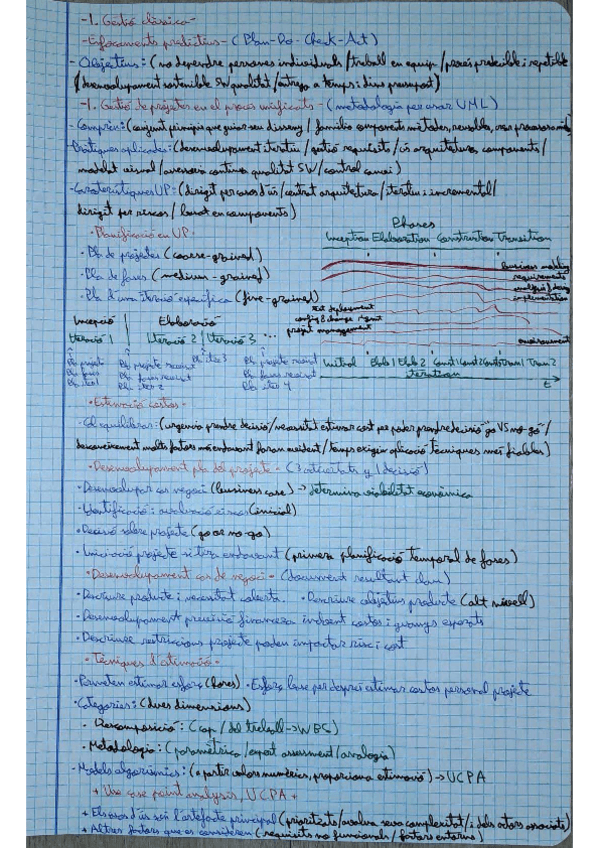 -1. Gestió clàssica-
-Enfocaments predictius- (Plan-Do-Check-Act)
- Objectius: (no dependre persones individuals/treball en equip/procés predecible i repetible
/desenvolupament sostenible SW qualitat/entrega a temps i dins pressupost)
-1. Gestió de projectes en el procés unificat- (metodologia per usar UML)
-Comprèn: (conjunt principis que guien seu disseny/família components mètodes, reusable,
-Pràtiques aplicades: (desenvolupament iteratiu/gestió requisits/ús arquitectura components/
modelat visual/ contínua qualitat SW/control canvi)
-Característiques UP: (dirigit per casos d'ús/centrat arquitectura/iteratiu i incremental/
dirigit per riscos/basat en components)
-Planificació en UP-
-Pla de projectes (coarse-grained)
-Pla de fases (medium-grained)
-Pla d'una iteració específica (fine-grained)
Phases
Inception Elaboration Construction Transition
business modeling
requirements
analysis & design
implementation
test deployment
config & change mgmt
project management
environment
Initial Elab1 Elab2 Const1 Const2 Tran2
iteration
t
Incepció | Elaboració
Iteració 1 | Iteració 2 / Iteració 3 ...
Pla projecte
Pla fases
Pla iter1
Pla projecte revisat
Pla fases revisat
Pla iter 2
Pla iter 3
Pla projecte revisat
Pla fases revisat
Pla iter 4
-Estimació costos-
-Cal equilibrar: (urgència prendre decisió/necessitat estimar cost per poder prendre decisió "go VS no-go"/
desconeixement molts factors més endavant seran evident/temps exigir aplicació tècniques més fiables)
-Desenvolupament pla de projecte- (3 activitats y 1 decisió)
-Desenvolupar cas negoci (business case) → determina viabilitat econòmica
-Identificació i avaluació riscos (inicial)
-Decisió sobre projecte (go or no-go)
-Iniciació projecte si tira endavant (primera planificació temporal de fases)
-Desenvolupament cas de negoci- (document resultant clau)
-Descriure producte i necessitat coberta. -Descriure objectius producte (alt nivell)
-Desenvolupament previsió financera incloent costos i guanys esperats
-Descriure restriccions projecte poden impactar risc i cost
-Tècniques d'estimació-
-Permeten estimar esforç (hores) -Esforç base per després estimar costos personal projecte
-Categories: (dues dimensions)
-Descomposició: (cap/del treball→WBS)
-Metodologia: (paramètrica/expert assessment/analogia)
-Models algorísmics: (a partir valors numèrics, proporciona estimació) → UCPA
+ Use case point analysis, UCPA +
+ Els casos d'ús són l'artefacte principal (prioritzats/avalua seva complexitat/i dels actors associats)
+ Altres factors que es consideren (requisits no funcionals/factors entorn)